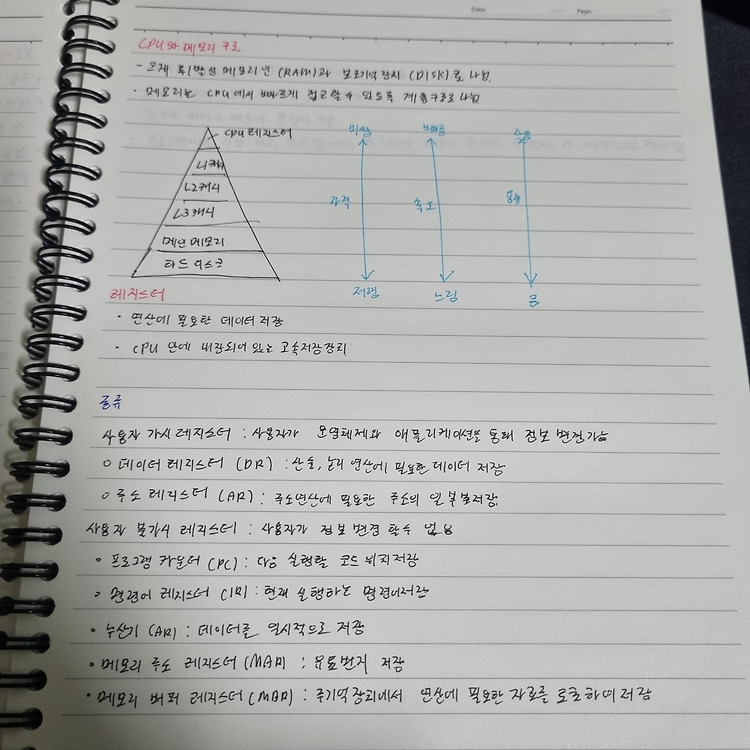 Date: Page:
CPU와 메모리 구조
- 크게 휘발성 메모리인 (RAM)과 보조기억장치 (DISK)로 나뉨.
· 메모리는 CPU에서 빠르게 접근할 수 있도록 계층구조로 나뉨
CPU 레지스터
L1캐시
L2캐시
L3캐시
메인 메모리
하드 디스크
비쌈 빠름 작음
가격 속도 용량
저렴 느림 큼
레지스터
· 연산에 필요한 데이터 저장
· CPU 안에 내장되어 있는 고속저장장치
종류
사용자 가시 레지스터 : 사용자가 운영체제와 애플리케이션을 통해 정보 변경가능
○ 데이터 레지스터 (DR) : 산술, 논리 연산에 필요한 데이터 저장
○ 주소 레지스터 (AR) : 주소연산에 필요한 주소의 일부분저장
사용자 불가시 레지스터 : 사용자가 정보 변경 할수 없음
· 프로그램 카운터 (PC) : 다음 실행할 코드 위치저장
· 명령어 레지스터 (IR) : 현재 실행하는 명령어저장
· 누산기 (AR) : 데이터를 일시적으로 저장
· 메모리 주소 레지스터 (MAR) : 유효번지 저장
· 메모리 버퍼 레지스터 (MBR) : 주기억장치에서 연산에 필요한 자료를 호출하여 저장